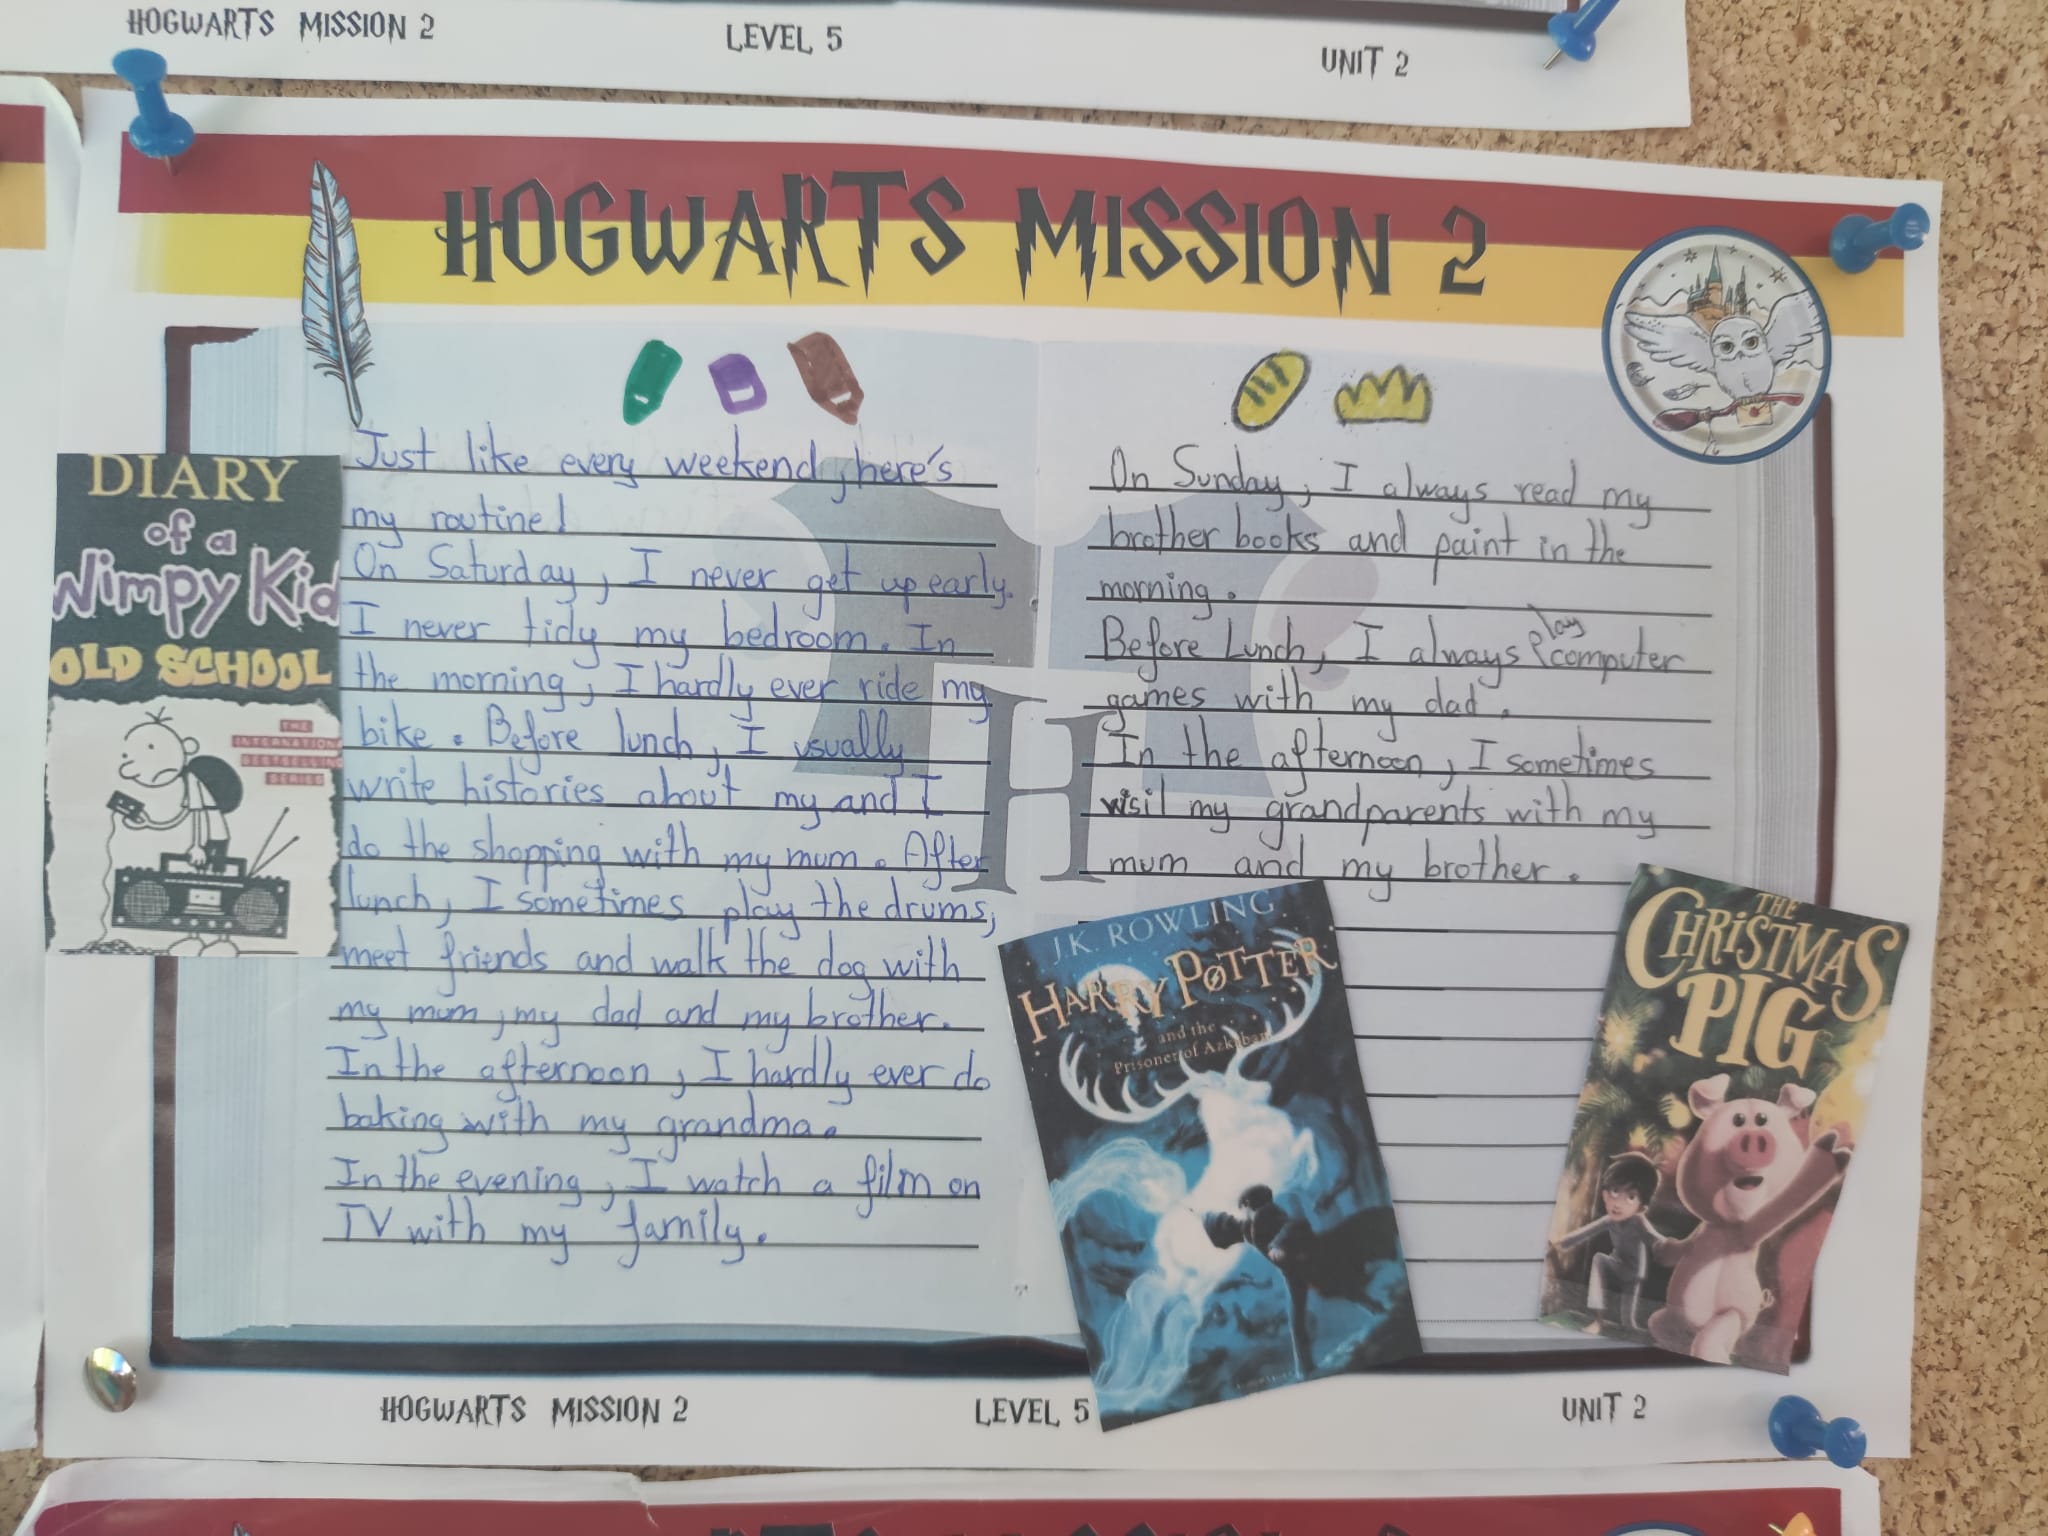 HOGWARTS MISSION 2
LEVEL 5
UNIT 2
HOGWARTS MISSION 2
Just like every weekend, here's
my routine!
On Saturday, I never get up early.
I never tidy my bedroom. In
the morning, I hardly ever ride my
bike. Before lunch, I usually
write histories about my and I
do the shopping with my mum. After
lunch, I sometimes play the drums,
meet friends and walk the dog with
my mum, my dad and my brother.
In the afternoon, I hardly ever do
baking with my grandma.
In the evening, I watch a film on
TV with my family.
On Sunday, I always read my
brother books and paint in the
morning.
Before Lunch, I always play computer
games with my dad.
In the afternoon, I sometimes
visit my grandparents with my
mum and my brother.
DIARY
of a
Wimpy Kid
OLD SCHOOL
THE
INTERNATIONAL
BESTSELLING
SERIES
J.K. ROWLING
HARRY POTTER
and the
Prisoner of Azkaban
THE
CHRISTMAS
PIG
H
HOGWARTS MISSION 2
LEVEL 5
UNIT 2